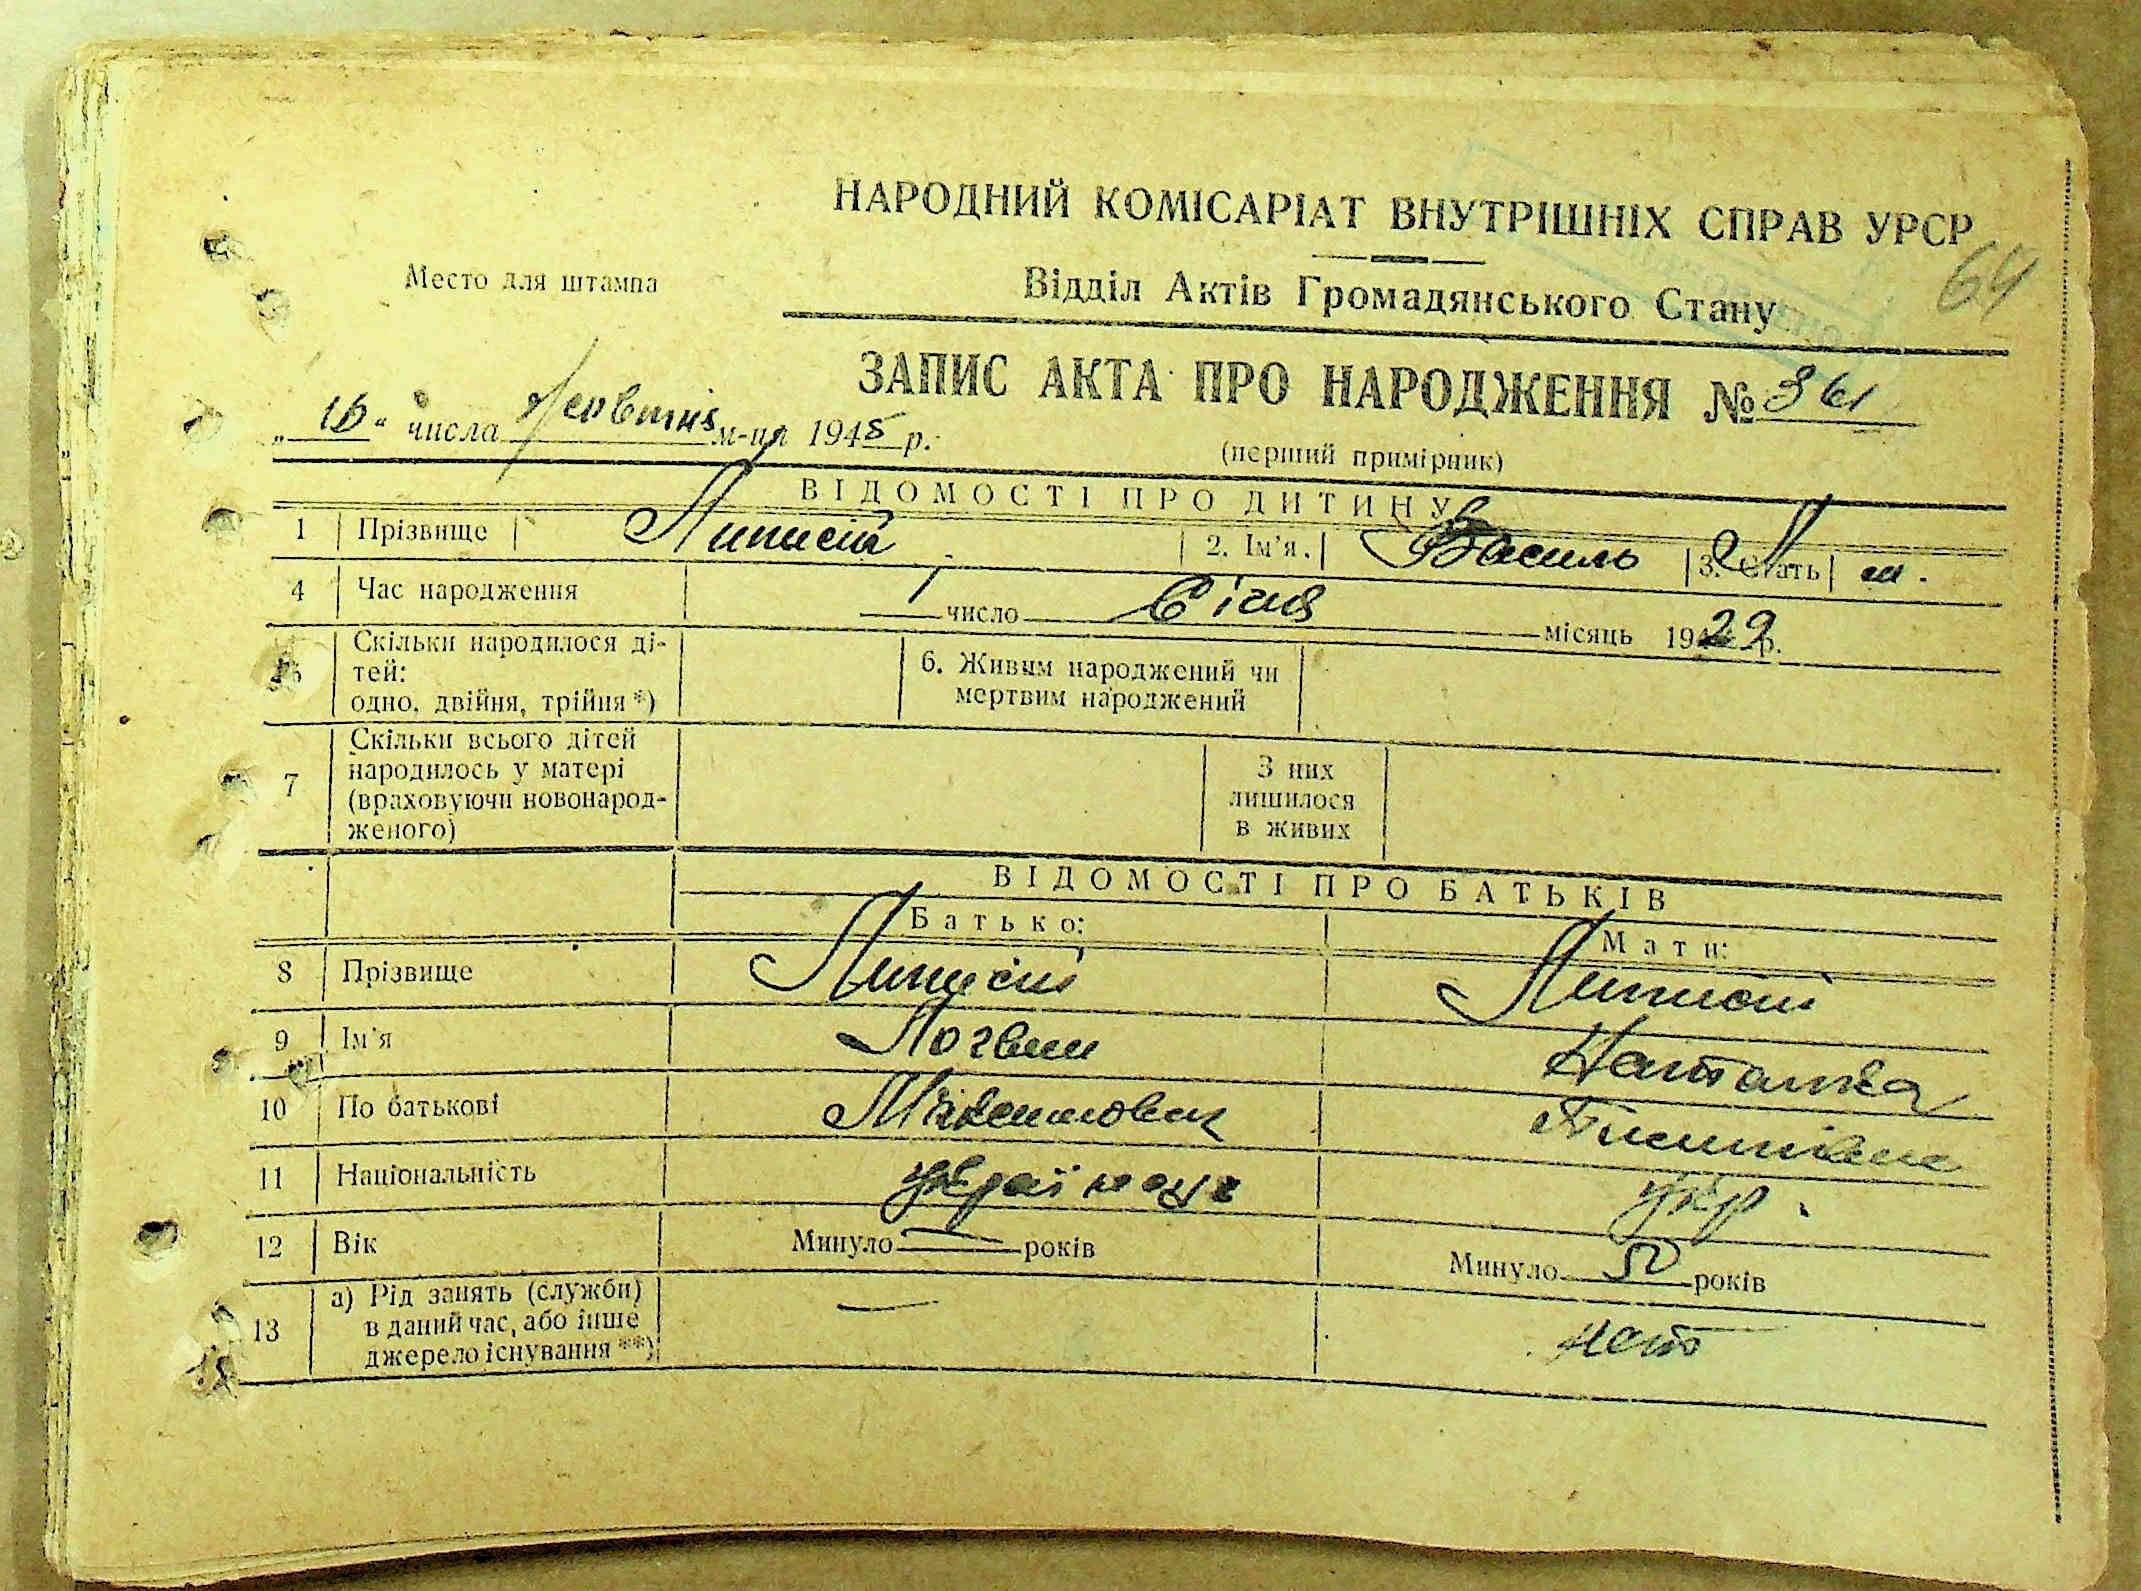 НАРОДНИЙ КОМІСАРІАТ ВНУТРІШНІХ СПРАВ УРСР
64
Место для штампа
Відділ Актів Громадянського Стану
ЗАПИС АКТА ПРО НАРОДЖЕННЯ № 361
„ 15 “ числа Червтня м-ця 1945 р.
(перший примірник)
ВІДОМОСТІ ПРО ДИТИНУ
1 Прізвище 2. Ім'я. Василь 3. Стать м.
4 Час народження 1 число Січня місяць 1929 р.
5 Скільки народилося ді-
тей:
одно, двійня, трійня *)
6. Живим народжений чи
мертвим народжений
7 Скільки всього дітей
народилось у матері
(враховуючи новонарод-
женого)
З них
лишилося
в живих
ВІДОМОСТІ ПРО БАТЬКІВ
Батько: Мати:
8 Прізвище
9 Ім'я Логвин Наталка
10 По батькові Максимович
11 Національність українець укр.
12 Вік Минуло — років Минуло 50 років
13 а) Рід занять (служби)
в даний час, або інше
джерело існування **)
— нет